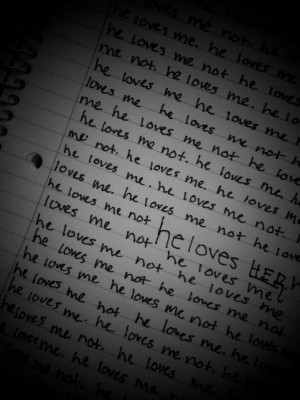 loves me not. he
he loves me. he loves
he loves me not he loves
me not. he loves me. he lo
he loves me he loves me
loves me he loves me not h
me he loves me not he love
he loves me not. he loves me. he
me not. he loves me. he loves me
he loves me. he loves me not.
loves me. he loves me not he lov
he loves me not he loves HER
loves me not he loves me
he loves me not he loves me
he loves me not he loves me not
he loves me he loves me not he loves
he loves me not he loves me. he
he loves me. he loves me not. he
he loves me not. he loves me. he
me. he loves me. he loves me
loves me not. he loves